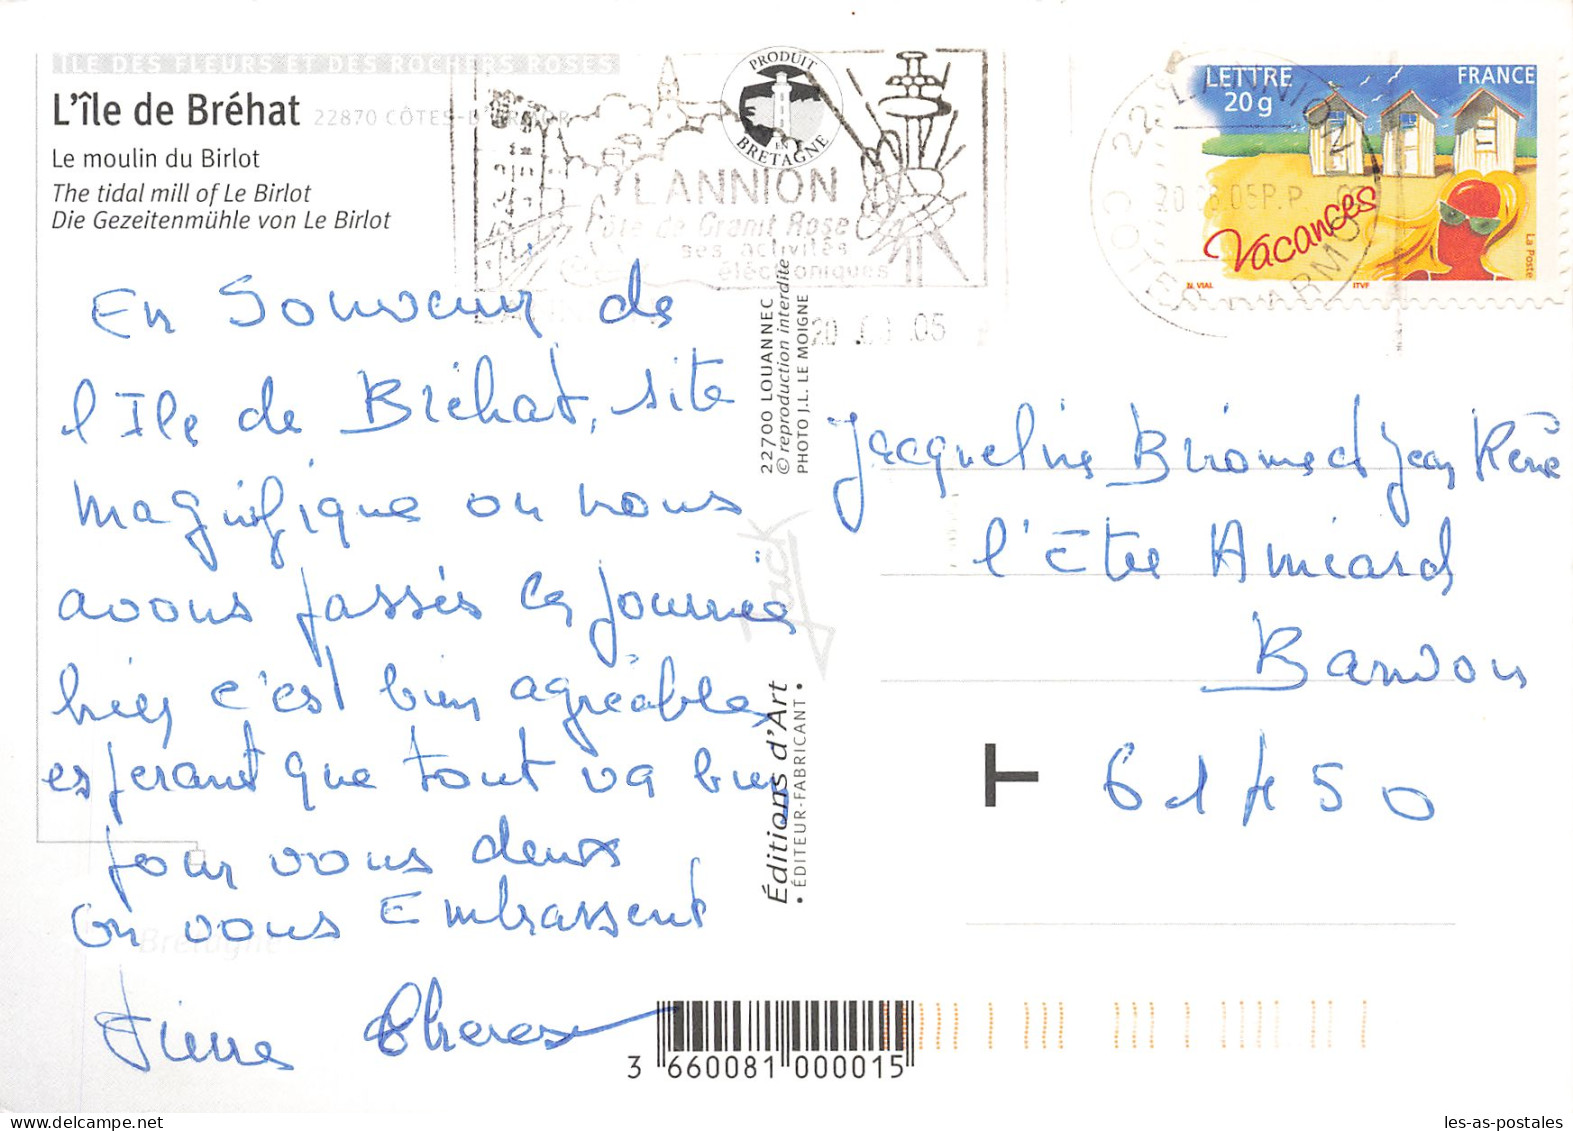 ÎLE DES FLEURS ET DES ROCHERS ROSES
L'île de Bréhat 22870 CÔTES-D'ARMOR
Le moulin du Birlot
The tidal mill of Le Birlot
Die Gezeitenmühle von Le Birlot
PRODUIT
EN
BRETAGNE
LANNION
Côte de Granit Rose
ses activités
électroniques
20 05
22 LANNION
COTES D'ARMOR
05P.P.
LETTRE
20 g
FRANCE
Vacances
La Poste
N. VIAL
ITVF
En Souvenir de
l'Ile de Bréhat, site
magnifique ou nous
avons passés la journée
hier c'est bien agréable,
esperant que tout va bien
pour vous deux
on vous Embrassent
Pierre Therese
22700 LOUANNEC
© reproduction interdite
PHOTO J.L. LE MOIGNE
Jack
Éditions d'Art
• ÉDITEUR-FABRICANT •
Jacqueline et Jean René
l'Etre Amiard
61450
T
Bretagne
3 660081 000015
les-as-postales